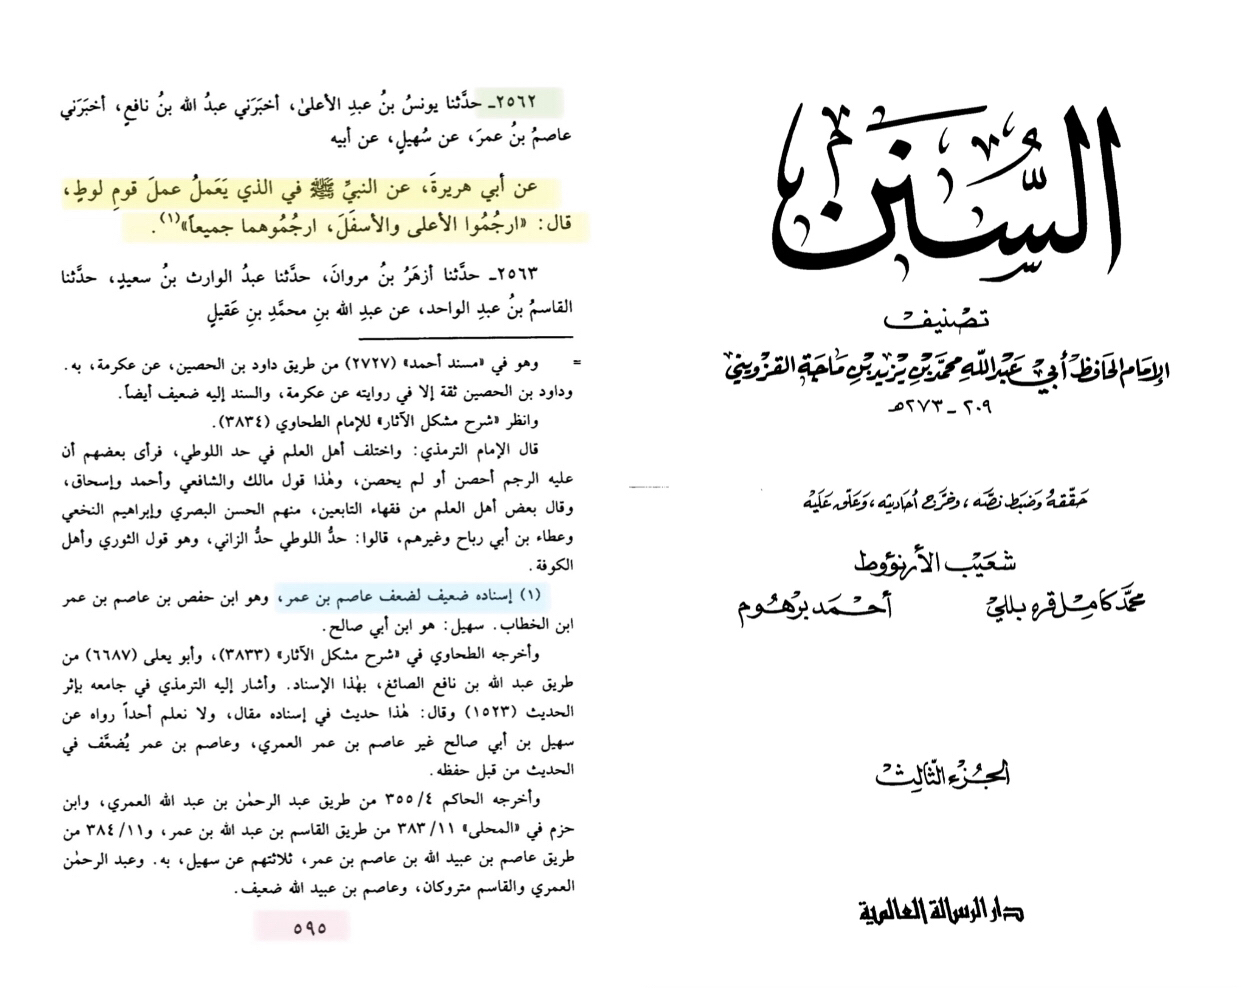 السُّنَن
تصنيف
الإمام الحافظ أبي عبد الله محمد بن يزيد بن ماجة القزويني
٢٠٩ - ٢٧٣هـ
حقّقه وضبط نصّه، وخرّج أحاديثه، وعلّق عليه
شعيب الأرنؤوط
محمّد كامل قره بللي أحمد برهوم
الجزء الثالث
دار الرسالة العالمية
٢٥٦٢ـ حدَّثنا يونسُ بنُ عبدِ الأعلىٰ، أخبَرَني عبدُ الله بنُ نافعٍ، أخبَرَني
عاصمُ بنُ عمرَ، عن سُهيلٍ، عن أبيه
عن أبي هريرةَ، عن النبيِّ ﷺ في الذي يَعَملُ عملَ قومِ لوطٍ،
قال: «ارجُمُوا الأعلى والأسفَلَ، ارجُمُوهما جميعاً»(١).
٢٥٦٣ـ حدَّثنا أزهَرُ بنُ مروانَ، حدَّثنا عبدُ الوارث بنُ سعيدٍ، حدَّثنا
القاسمُ بنُ عبدِ الواحد، عن عبدِ الله بنِ محمَّدِ بنِ عَقيلٍ
= وهو في «مسند أحمد» (٢٧٢٧) من طريق داود بن الحصين، عن عكرمة، به.
وداود بن الحصين ثقة إلا في روايته عن عكرمة، والسند إليه ضعيف أيضاً.
وانظر «شرح مشكل الآثار» للإمام الطحاوي (٣٨٣٤).
قال الإمام الترمذي: واختلف أهل العلم في حد اللوطي، فرأى بعضهم أن
عليه الرجم أحصن أو لم يحصن، وهٰذا قول مالك والشافعي وأحمد وإسحاق،
وقال بعض أهل العلم من فقهاء التابعين، منهم الحسن البصري وإبراهيم النخعي
وعطاء بن أبي رباح وغيرهم، قالوا: حدُّ اللوطي حدُّ الزاني، وهو قول الثوري وأهل
الكوفة.
(١) إسناده ضعيف لضعف عاصم بن عمر، وهو ابن حفص بن عاصم بن عمر
ابن الخطاب. سهيل: هو ابن أبي صالح.
وأخرجه الطحاوي في «شرح مشكل الآثار» (٣٨٣٣)، وأبو يعلى (٦٦٨٧) من
طريق عبد الله بن نافع الصائغ، بهٰذا الإسناد. وأشار إليه الترمذي في جامعه بإثر
الحديث (١٥٢٣) وقال: هٰذا حديث في إسناده مقال، ولا نعلم أحداً رواه عن
سهيل بن أبي صالح غير عاصم بن عمر العمري، وعاصم بن عمر يُضعَّف في
الحديث من قبل حفظه.
وأخرجه الحاكم ٣٥٥/٤ من طريق عبد الرحمٰن بن عبد الله العمري، وابن
حزم في «المحلى» ٣٨٣/١١ من طريق القاسم بن عبد الله بن عمر، و٣٨٤/١١ من
طريق عاصم بن عبيد الله بن عاصم بن عمر، ثلاثتهم عن سهيل، به. وعبد الرحمٰن
العمري والقاسم متروكان، وعاصم بن عبيد الله ضعيف.
٥٩٥